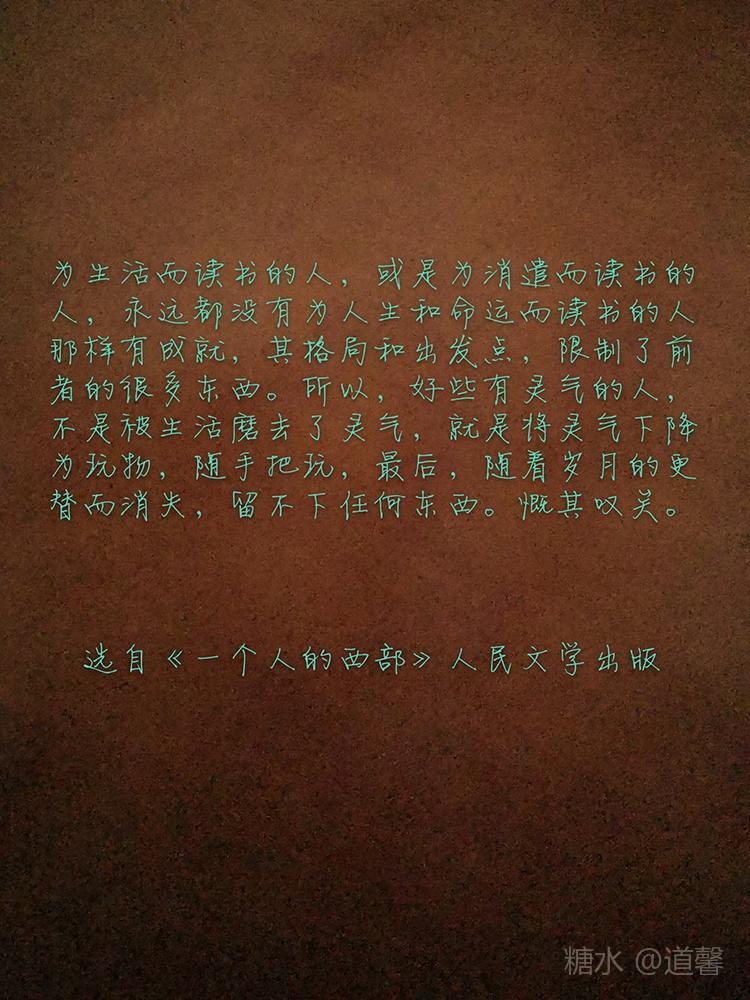 为生活而读书的人，或是为消遣而读书的
人，永远都没有为人生和命运而读书的人
那样有成就，其格局和出发点，限制了前
者的很多东西。所以，好些有灵气的人，
不是被生活磨去了灵气，就是将灵气下降
为玩物，随手把玩，最后，随着岁月的更
替而消失，留不下任何东西。慨其叹关。
选自《一个人的西部》人民文学出版
糖水 @道馨